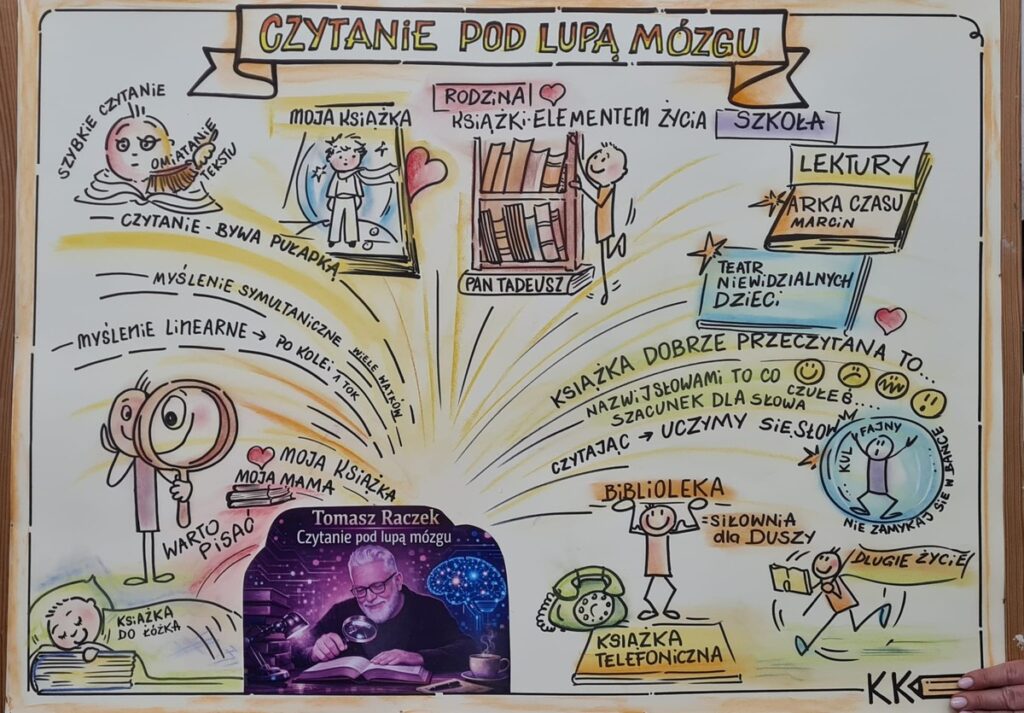 CZYTANIE POD LUPĄ MÓZGU
SZYBKIE CZYTANIE
OMIATANIE
TEKSTU
— CZYTANIE - BYWA PUŁAPKĄ
MOJA KSIĄŻKA
RODZINA
KSIĄŻKI-ELEMENTEM ŻYCIA
PAN TADEUSZ
SZKOŁA
LEKTURY
ARKA CZASU
MARCIN
TEATR
NIEWIDZIALNYCH
DZIECI
MYŚLENIE SYMULTANICZNE
WIELE WĄTKÓW
MYŚLENIE LINEARNE → PO KOLEI 1 TOK
KSIĄŻKA DOBRZE PRZECZYTANA TO...
NAZWIJ SŁOWAMI TO CO
CZUŁEŚ....
SZACUNEK DLA SŁOWA
CZYTAJĄC → UCZYMY SIĘ SŁÓW
KUL
FAJNY
NIE ZAMYKAJ SIĘ W BAŃCE
MOJA KSIĄŻKA
MOJA MAMA
WARTO
PISAĆ
KSIĄŻKA
DO ŁÓŻKA
Tomasz Raczek
Czytanie pod lupą mózgu
BIBLIOLEKA
=SIŁOWNIA
dla DUSZY
KSIĄŻKA
TELEFONICZNA
DŁUGIE ŻYCIE
KK